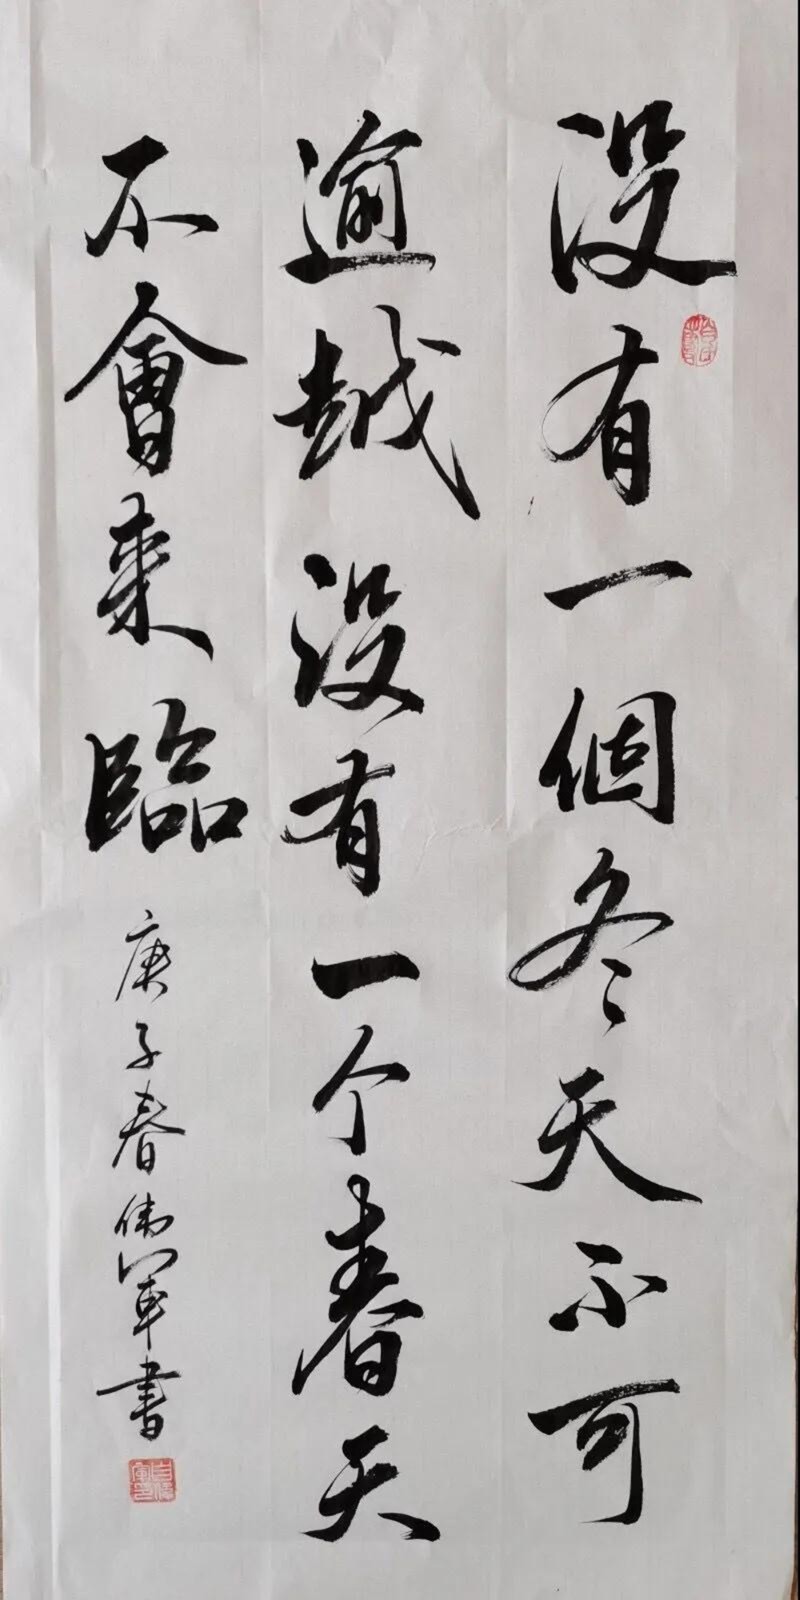 没有一個冬天不可
逾越没有一个春天
不會来臨
庚子春偉軍書